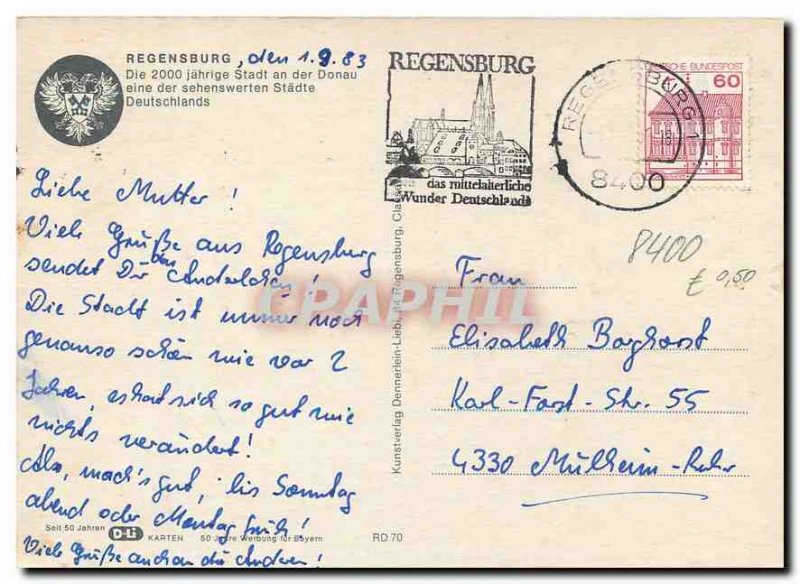 REGENSBURG, den 1.9.83
Die 2000 jährige Stadt an der Donau
eine der sehenswerten Städte
Deutschlands
Liebe Mutter!
Viele Grüße aus Regensburg
sendet Dir das
Die Stadt ist immer noch
genauso schön wie vor 2
Jahren, es hat sich so gut wie
nichts verändert!
Also, mach's gut, bis Sonntag
abend oder Montag früh!
Viele Grüße auch an die Anderen!
Seit 50 Jahren D-Li KARTEN 50 Jahre Werbung für Bayern RD 70
Kunstverlag Dennerlein-Liebl, 84 Regensburg,
REGENSBURG
das mittelalterliche
Wunder Deutschlands
REGENSBURG 1
8400
DEUTSCHE BUNDESPOST
60
8400
€ 0,50
Frau
Elisabeth Borghorst
Karl-Forst-Str. 55
4330 Mülheim-Ruhr
CPAPHIL